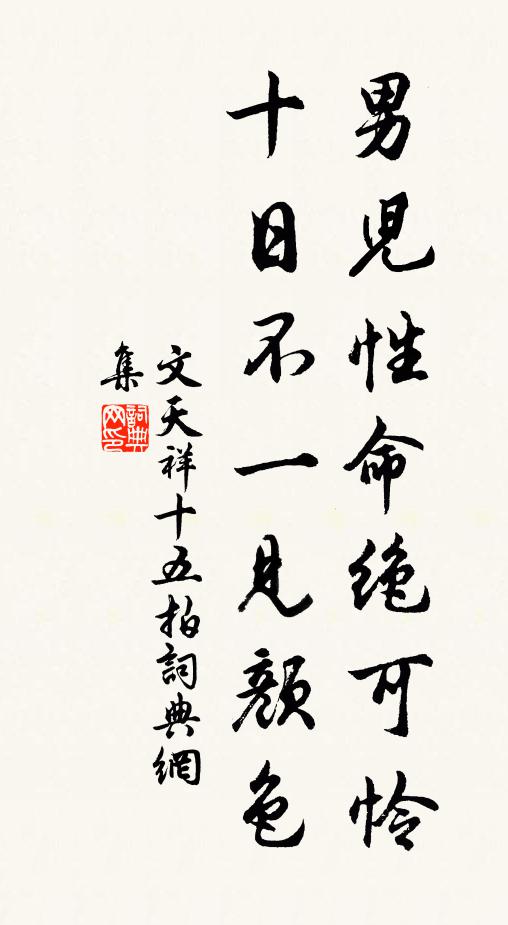 男兒性命絶可怜
十日不一見顔色
文天祥十五拍詞典網
集
詞典网印